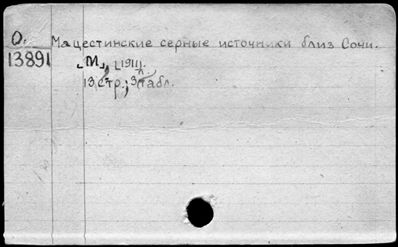 О. Мацестинские серные источники близ Сочи.
13891 [М], [1911].
13 стр.; 3 табл.